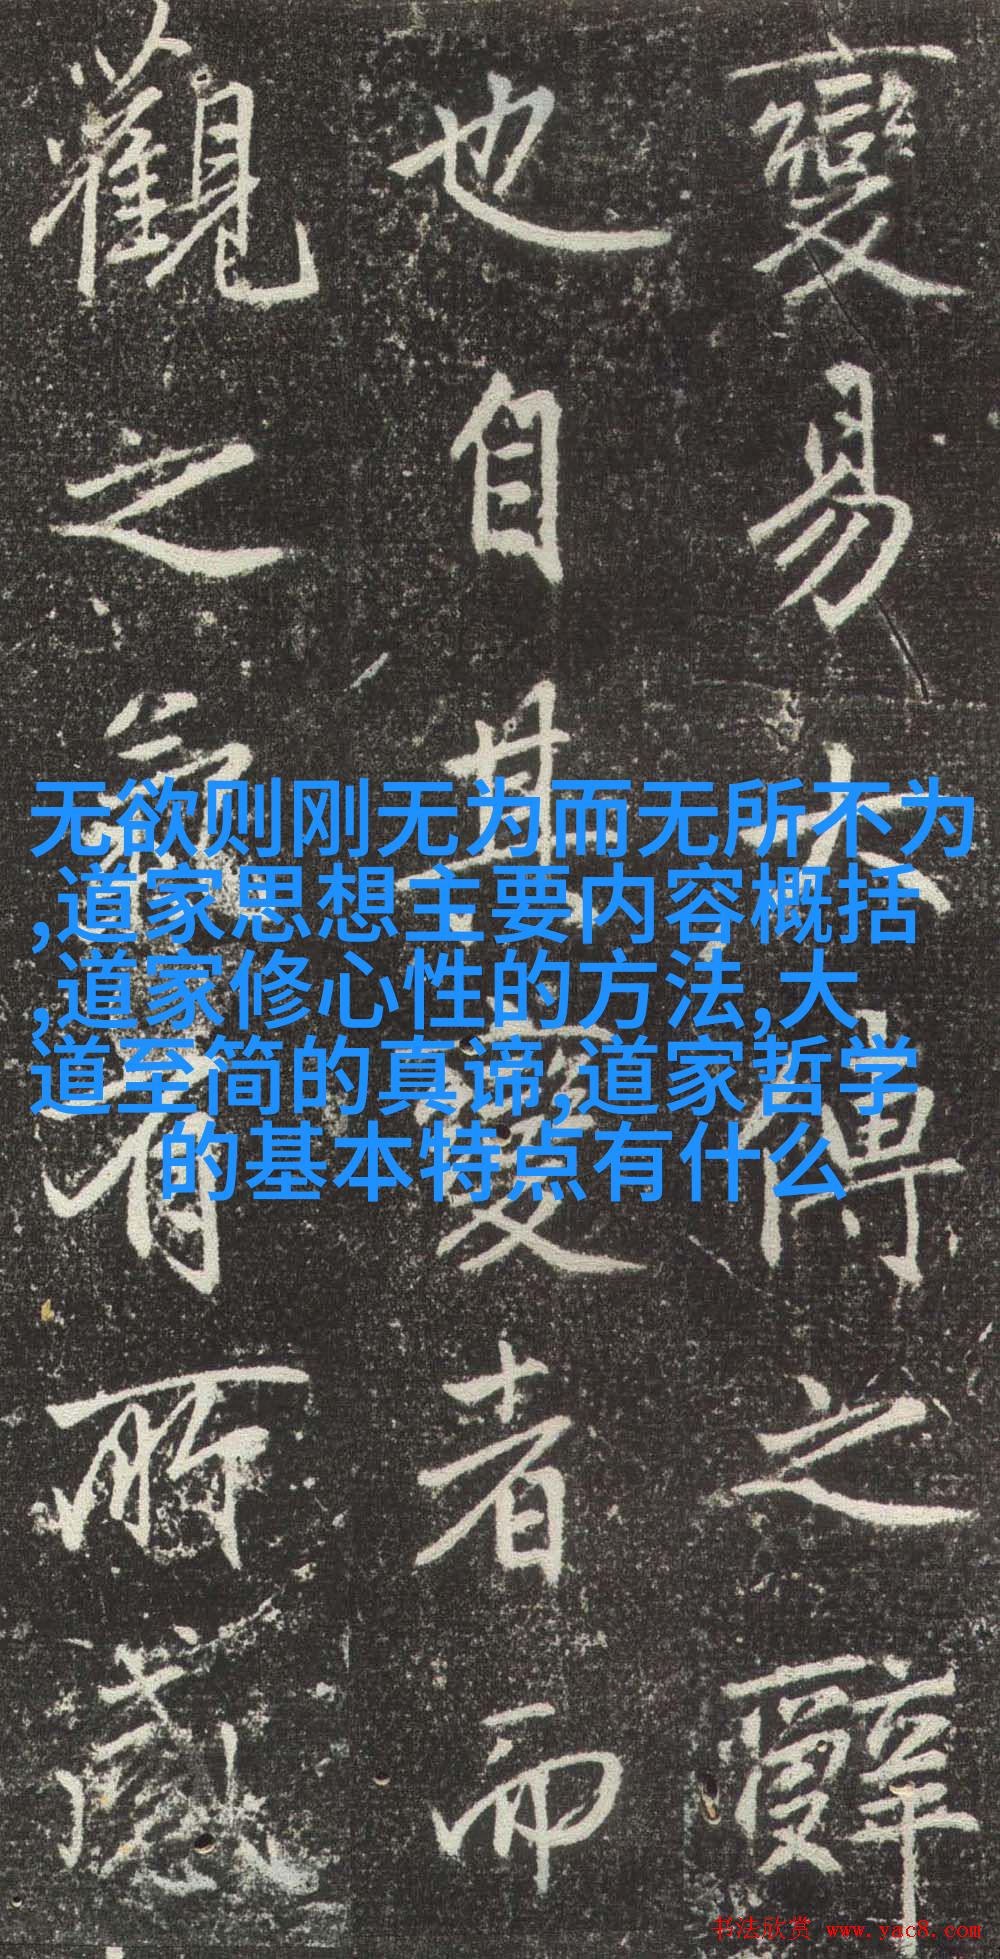 變易大傳之辭
也自其變者而
觀之氣有所感
无欲则刚无为而无所不为
,道家思想主要内容概括
,道家修心性的方法,大
道至简的真谛,道家哲学
的基本特点有什么
书法欣赏 www.yac8.com